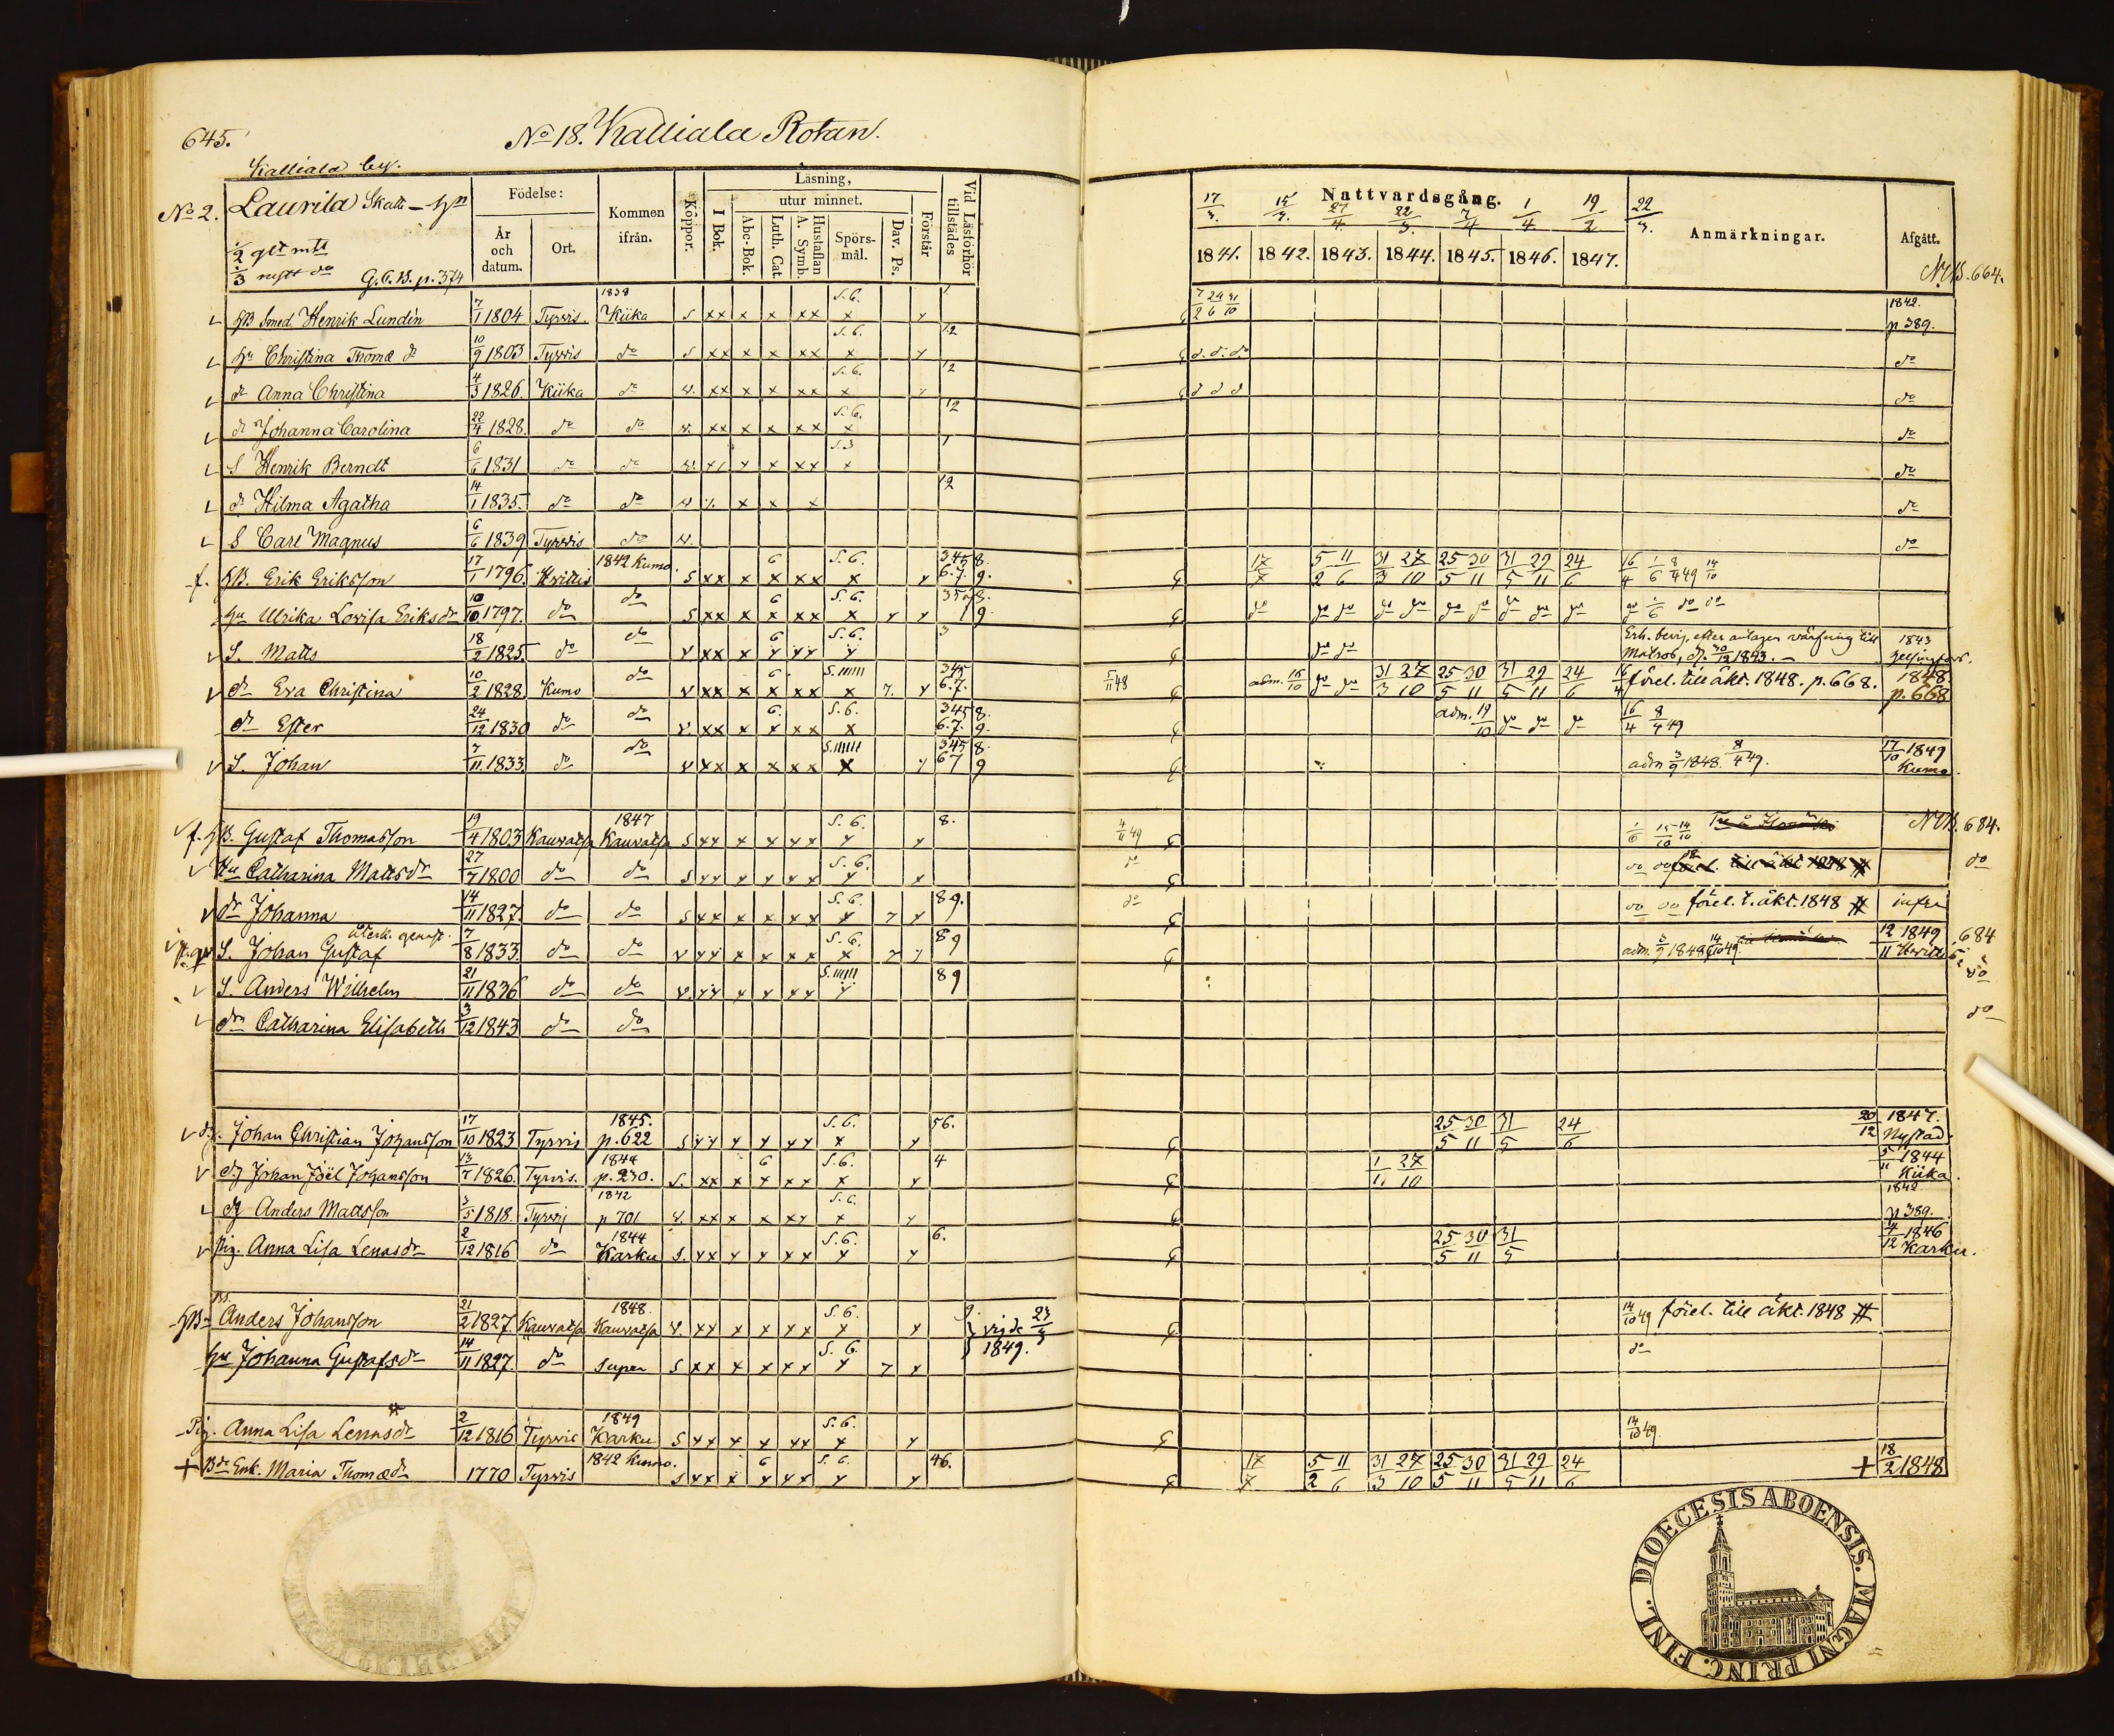 645.
No 18. Kalliala Rotan.
Kalliala by.
No 2. Laurila Skatt-hn
1/2 glt mtl
1/3 nytt do G.C.B. p. 374
Födelse:
År och datum.
Ort.
Kommen ifrån.
Koppor.
Läsning,
I Bok.
utur minnet.
Abc-Bok.
Luth. Cat.
A. Symb. Hustaflan
Spörs-mål.
Dav. Ps.
Förstår
Vid Läsförhör tillstädes
Nattvardsgång.
17/3. 15/3. 27/4. 22/3. 7/4 1/4 19/2 22/3.
1841. 1842. 1843. 1844. 1845. 1846. 1847.
Anmärkningar.
Afgått.
NB. 664.
Smed. Henrik Lundén 7/1 1804 Tyrvis 1838 Kiika S xx x x xx S.6. x 7/2 24/6 31/10 1842. p 389.
hu Christina Thomæ dr 10/9 1803 Tyrvis do S xx x x xx S.6. x 12 d. d. do do
dr Anna Christina 4/3 1826. Kiika do v. xx x x xx S.6. x 12 d d d do
dr Johanna Carolina 22/4 1828. do do v. xx x x xx S.6. x 12 do
S Henrik Berndt 6/6 1831 do do v. S.3 do
dr Hilma Agatha 14/1 1835. do do v 12 do
S Carl Magnus 6/6 1839 Tyrvis do v. do
f. HB. Erik Eriksson 17/1 1796. Hvittis 1842 Kumo S xx x 6 x xx S.6. x 345 8. 6.7. 9. 17/7 5/2 11/6 31/3 27/10 25/5 30/11 31/5 29/11 24/6 16/4 1/6 8/4 49 14/10
hu Ulrika Lovisa Eriksdr 10/10 1797. do do S xx x 6 x xx S.6. x do do do do do do do do do do
S. Matts 18/2 1825. do do v xx x 6 S.6. 3 do do Erh. betyg. efter antagen värfning till Matros, d. 30/12 1843. 1843 Helsingfors.
dr Eva Christina 10/2 1828. Kumo do v xx x 6 x xx S.IIIIII x 7. 345 6.7. 5/11 48 adm. 16/10 do do 31/3 27/10 25/5 30/11 31/5 29/11 24/6 16/4 förel. till äkt. 1848. p. 668. 1848. p. 668
dr Ester 24/12 1830 do do v. xx x 6. x xx S.6. x 345 8. 6.7. 9. adm. 19/10 do do do 16/4 8/4 49
S. Johan 7/11 1833. do do v xx x x xx S.IIIIII x 345 8. 67 9 adm 3/9 1848. 8/4 49. 17/10 1849 Kumo.
f. HB. Gustaf Thomasson 19/4 1803 Kauvatsa 1847 Kauvatsa S S.6. 8. 4/6 49 1/6 15/10 14/10 NB. 684.
Hu Catharina Mattsdr 27/7 1800 do do S S.6. do do do do
dr Johanna 14/11 1827. do do S S.6. 7 89. do do do förel. t. äkt. 1848 # infra
S. Johan Gustaf 7/8 1833. do do v S.6. 7 89 adm. 3/9 1848 14/10 49. 12/11 1849 684
S. Anders Wilhelm 21/11 1836 do do v. S.IIIIII 89 do
dr Catharina Elisabeth 3/12 1843 do do do
Johan Christian Johansson 17/10 1823 Tyrvis 1845. p. 622 S S.6. 56. 25/5 30/11 31/5 24/6 20/12 1847. Nystad.
dg Johan Joël Johansson 13/7 1826. Tyrvis. 1844 p. 230. S. xx x 6 x xx S.6. x 4 1/11 27/10 5/11 1844 Kiika.
dg Anders Mattsson 3/5 1818. Tyrvis 1842 p 701 v. xx x x xx S.6. x 1842 p 389.
Pig. Anna Lisa Lenasdr 2/12 1816 do 1844 Karku S. S.6. 6. 25/5 30/11 31/5 4/12 1846 Karku.
Bs. Anders Johansson 21/2 1827. Kauvatsa 1848. Kauvatsa v. S.6 9. vigde 23/3 1849. 14/10 49 förel. till äkt. 1848 #
hu Johanna Gustafsdr 14/11 1827. do supra S S.6. 7 do
Pig. Anna Lisa Lenasdr # 2/12 1816 Tyrvis 1849 Karku S S.6. 14/10 49.
+ Enk. Maria Thomædr 1770 Tyrvis 1842 Kumo. S 6 S.6. 46. 17/7 5/2 11/6 31/3 27/10 25/5 30/11 31/5 29/11 24/6 + 18/2 1848
DIOECESIS ABOENSIS. MAGNI PRINC. FINL.